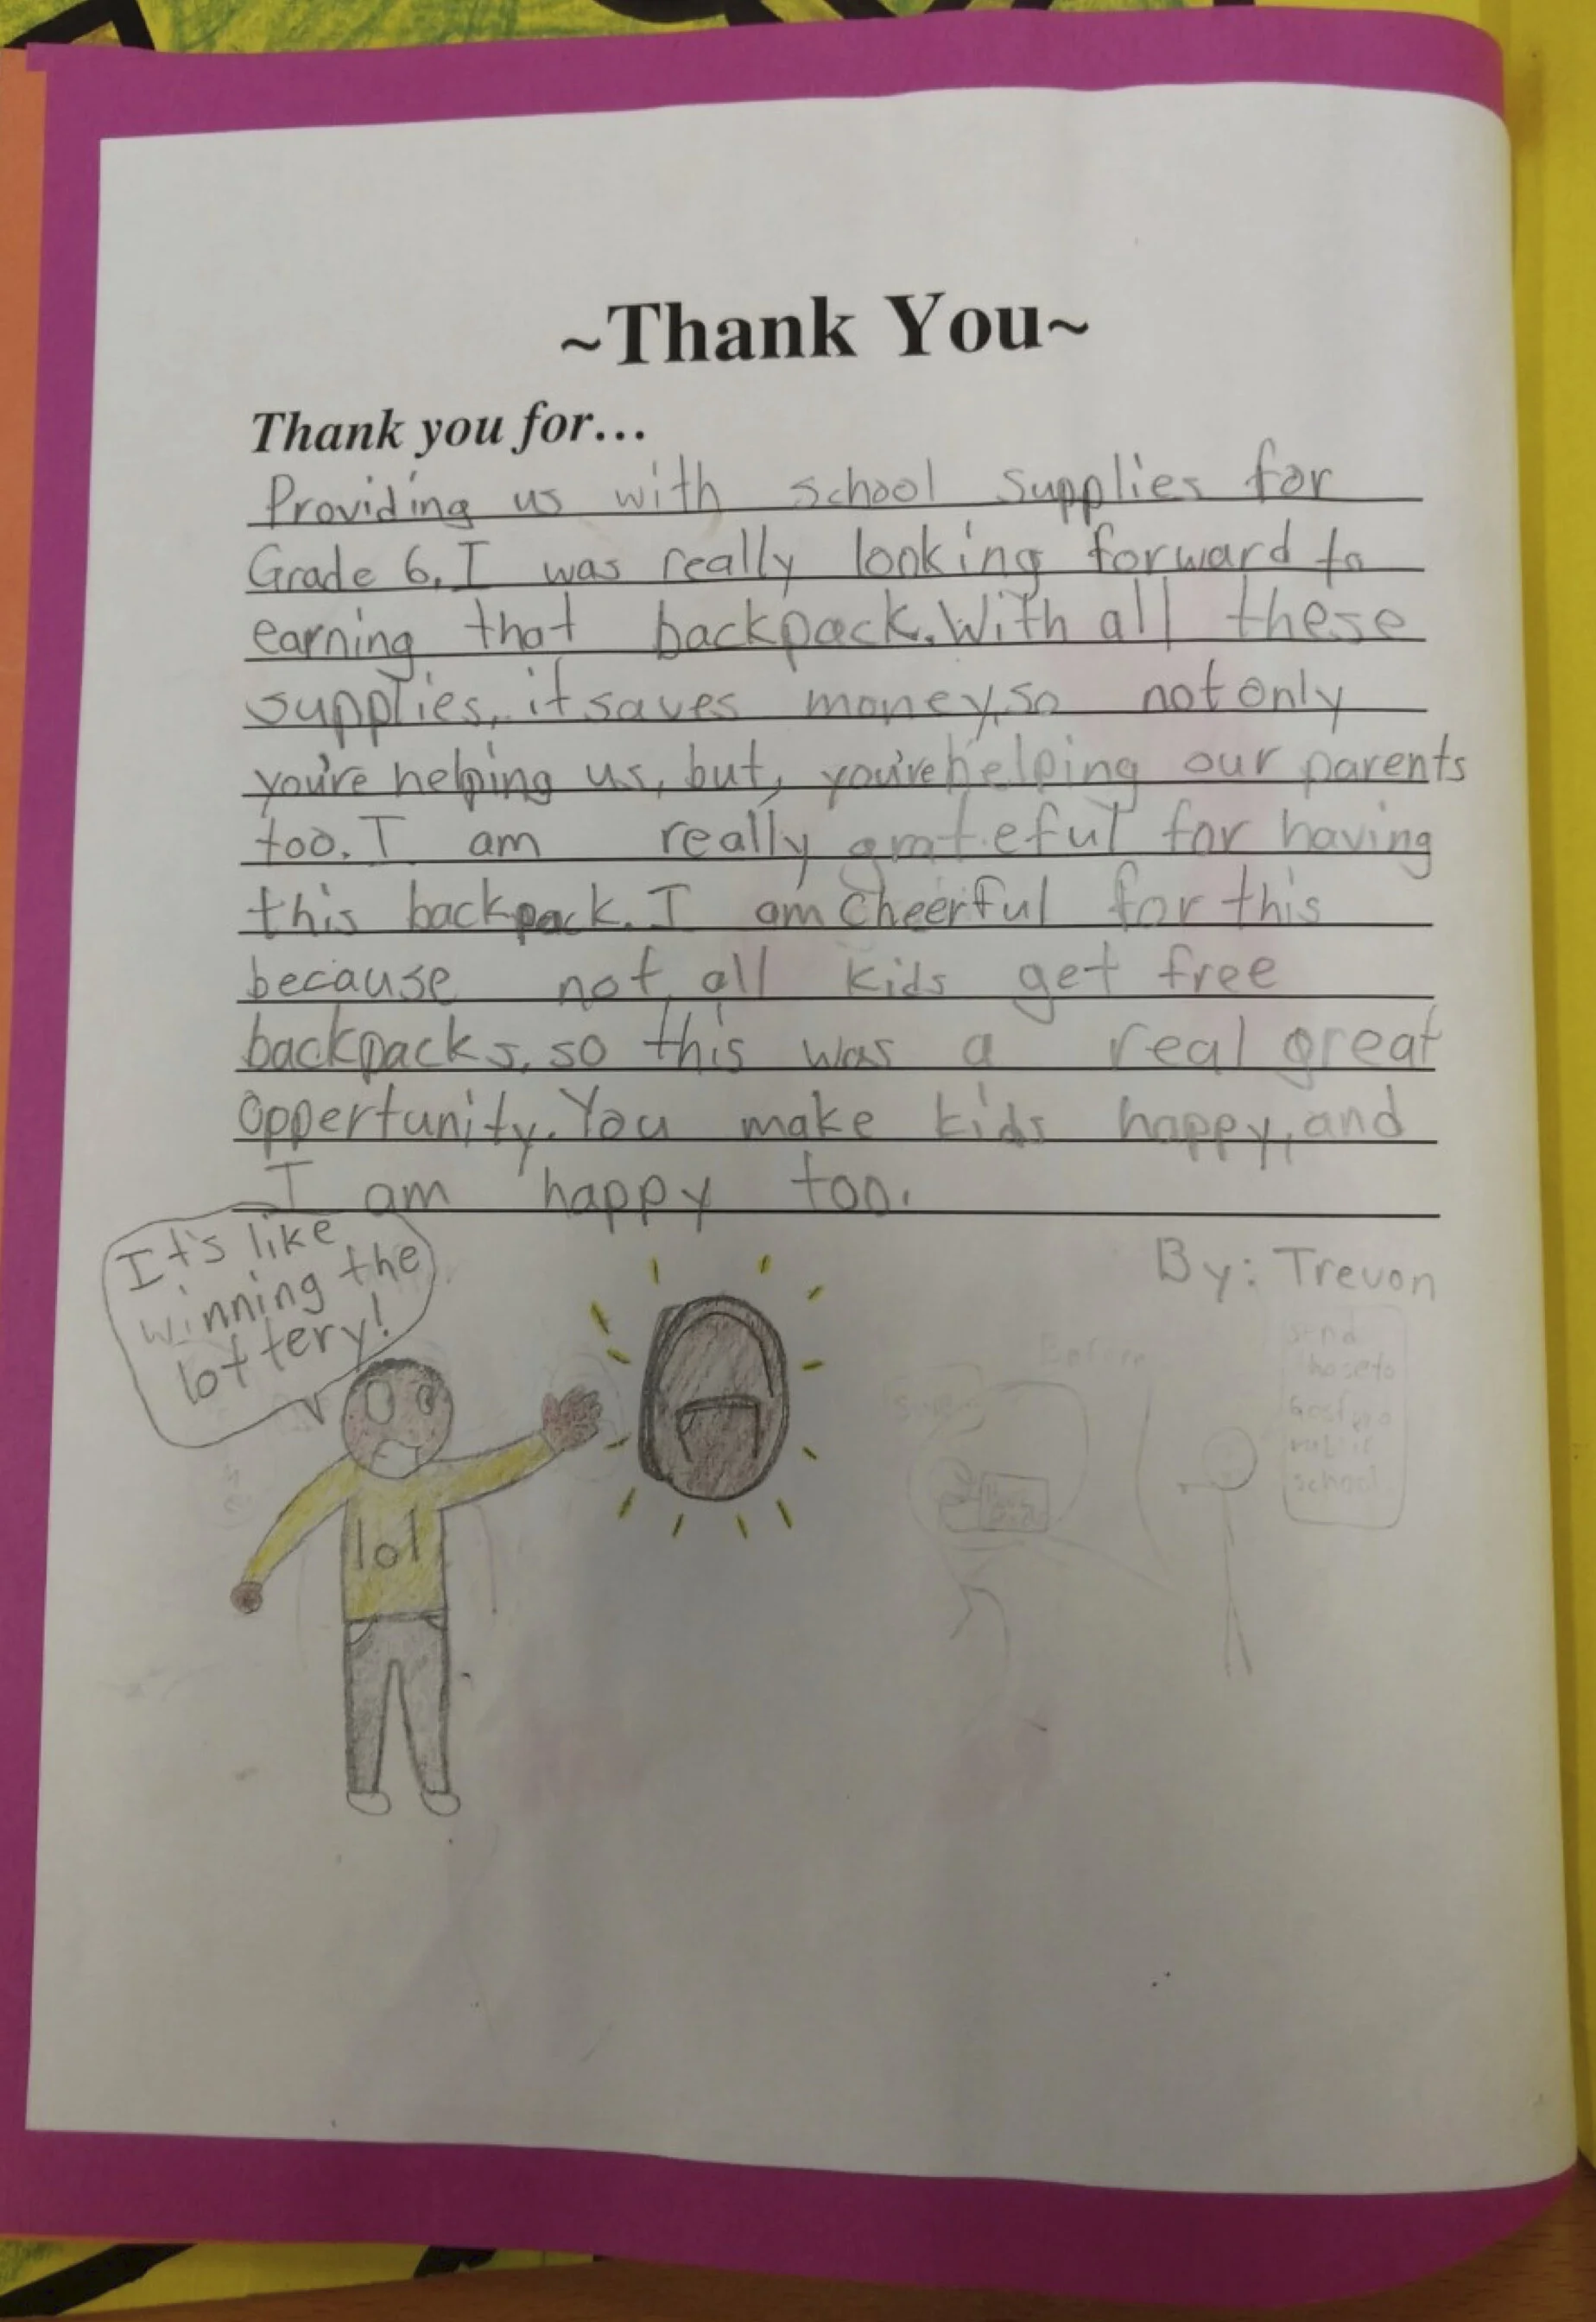 ~Thank You~
Thank you for...
Providing us with school supplies for
Grade 6. I was really looking forward to
earning that backpack. With all these
supplies, it saves money, so not only
you're helping us, but, you're helping our parents
too. I am really grateful for having
this backpack. I am cheerful for this
because not all kids get free
backpacks, so this was a real great
oppertunity. You make kids happy, and
I am happy too.
By: Trevon
It's like
winning the
lottery!
lol
Before
send
school